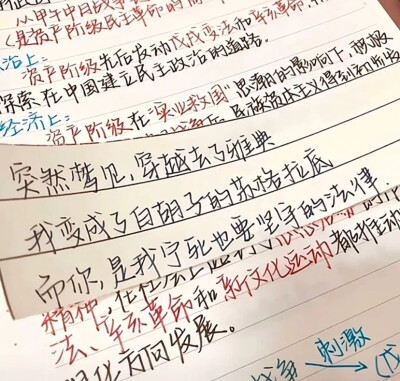 从甲午中日战争
(是资产阶级民主革命的
治上:
资产阶级先后发动戊戌变法和辛亥革命,
探索在中国建立民主政治的道路。
经济上:
资产阶级在"实业救国"思潮的影响下
民族资本主义得到
突然梦见,穿越去了雅典
我变成了白胡子的苏格拉底
而你,是我宁死也要坚守的法律
精神,
法、辛亥革命和新文化运动都推动
化方向发展。
战争 刺激 (戊